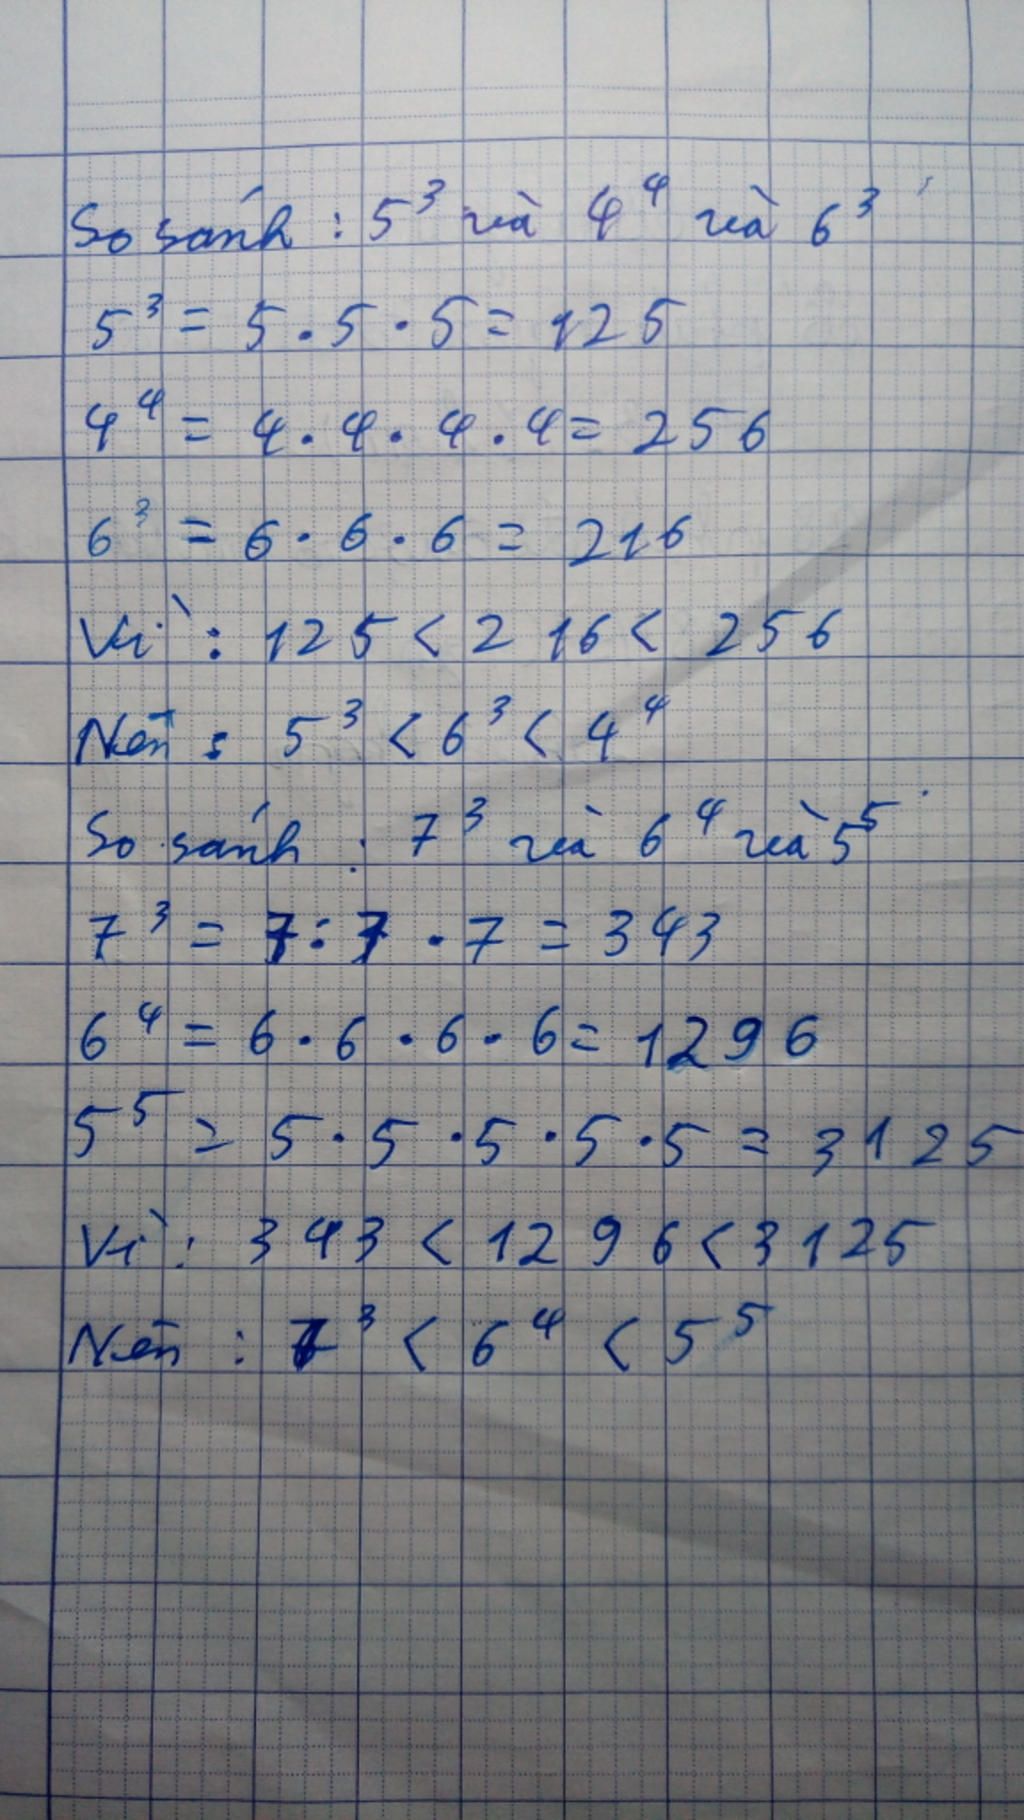 So sánh : 5³ và 4⁴ và 6³
5³ = 5 . 5 . 5 = 125
4⁴ = 4 . 4 . 4 . 4 = 256
6³ = 6 . 6 . 6 = 216
Vì : 125 < 216 < 256
Nên : 5³ < 6³ < 4⁴
So sánh : 7³ và 6⁴ và 5⁵
7³ = 7 . 7 . 7 = 343
6⁴ = 6 . 6 . 6 . 6 = 1296
5⁵ = 5 . 5 . 5 . 5 . 5 = 3125
Vì : 343 < 1296 < 3125
Nên : 7³ < 6⁴ < 5⁵